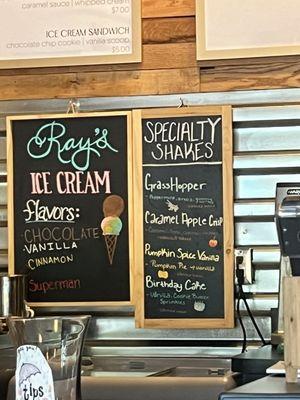 caramel sauce | whipped cream
$7.00
ICE CREAM SANDWICH
chocolate chip cookie | vanilla scoop
$5.00
Ray's
ICE CREAM
flavors:
-CHOCOLATE
-VANILLA
-CINNAMON
Superman
SPECIALTY
SHAKES
GrassHopper
Caramel Apple Crisp
Pumpkin Spice Vanilla
Pumpkin Pie Vanilla
Birthday Cake
Vanilla, Cookie Butter
Sprinkles
tips